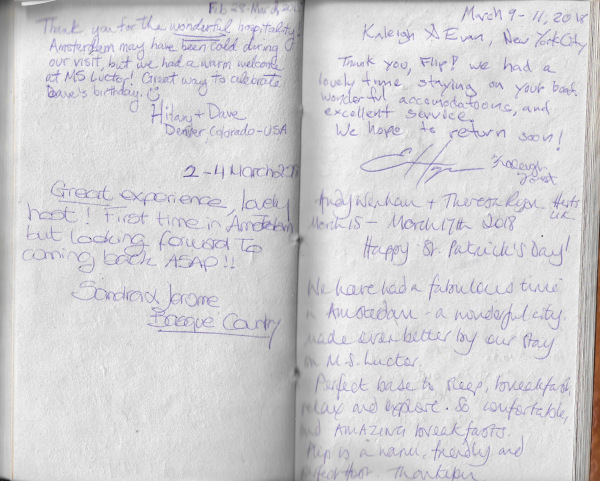 Feb 28 - March 2018
Thank you for the wonderful hospitality!
Amsterdam may have been cold during
our visit, but we had a warm welcome
at MS Luctor! Great way to celebrate
Dave's birthday.
Hilary + Dave
Denver, Colorado - USA
2-4 March 2018
Great experience, lovely
host! First time in Amsterdam
but looking forward to
coming back ASAP!!
Sandra & Jerome
Basque Country
March 9-11, 2018
Kaleigh & Evan, New York City
Thank you, Flip! We had a
lovely time staying on your boat.
Wonderful accomodations, and
excellent service.
We hope to return soon!
Andy Wenham + Theresa Ryan Herts
UK
March 15 - March 17th 2018
Happy St. Patrick's Day!
We have had a fabulous time
in Amsterdam - a wonderful city
made even better by our stay
on M.S. Luctor.
Perfect base to sleep, breakfast,
relax and explore. So comfortable,
and AMAZING breakfasts.
Flip is a warm, friendly and
perfect host. Thank you